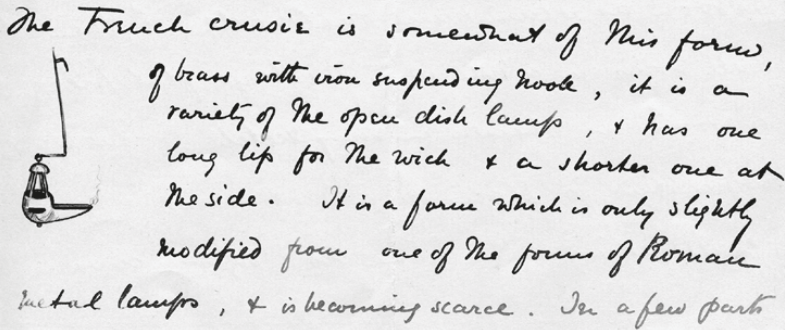 The French crusie is somewhat of this form,
of brass with iron suspending hook, it is a
variety of the open dish lamps, & has one
long lip for the wick & a shorter one at
the side. It is a form which is only slightly
modified from one of the forms of Roman
metal lamps, & is becoming scarce. In a few parts